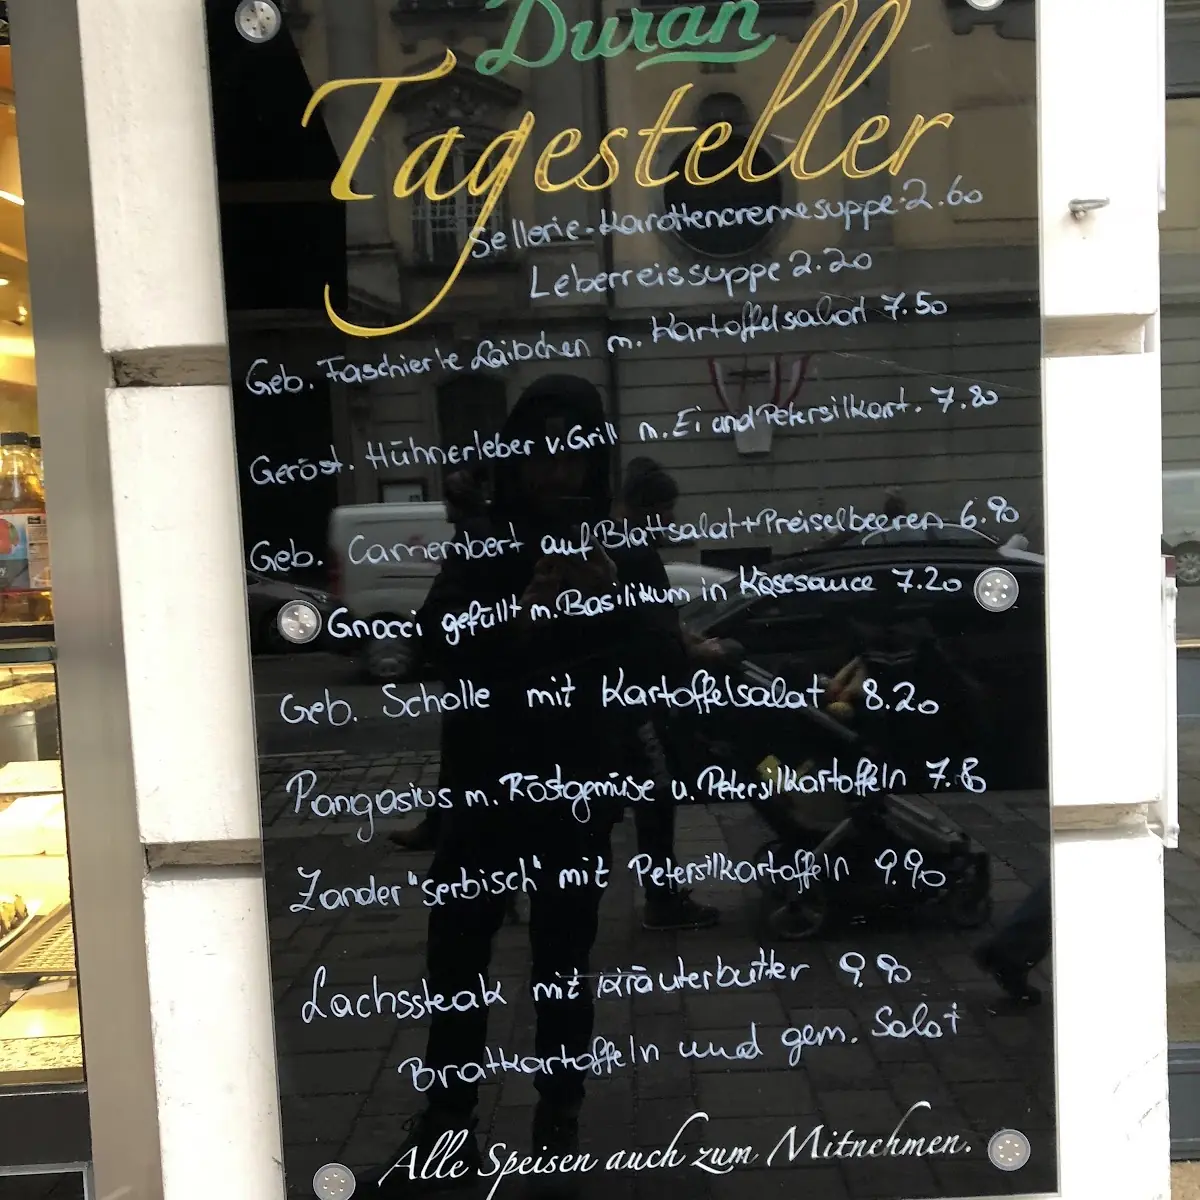 Duran
Tagesteller
Sellerie-Karottencremesuppe 2.60
Leberreissuppe 2.20
Geb. Faschierte Laibchen m. Kartoffelsalat 7.50
Geröst. Hühnerleber v. Grill m. Ei und Petersilkart. 7.80
Geb. Camembert auf Blattsalat+Preiselbeeren 6.90
Gnocci gefüllt m. Basilikum in Käsesauce 7.20
Geb. Scholle mit Kartoffelsalat 8.20
Pangasius m. Röstgemüse u. Petersilkartoffeln 7.8
Zander "serbisch" mit Petersilkartoffeln 9.90
Lachssteak mit Kräuterbutter 9.90
Bratkartoffeln und gem. Salat
Alle Speisen auch zum Mitnehmen.